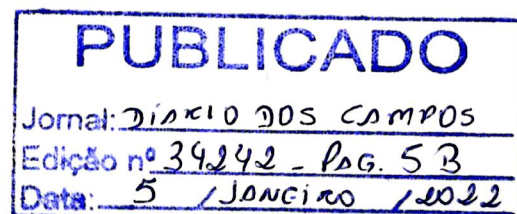 PUBLICADO
Jornal: DIÁRIO DOS CAMPOS
Edição nº 34242 - PAG. 5 B
Data: 5 / JANEIRO / 2022